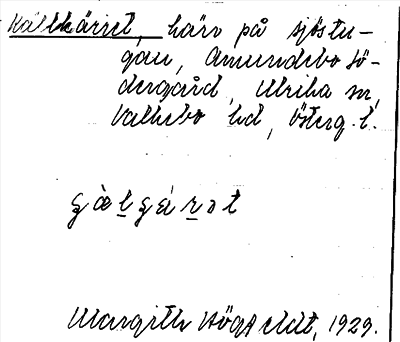 Källkärret, kärr på sjöstu-
gan, Amundebo Sö-
dergård, Ulrika sn,
Valkebo hd, Österg. l.
Margith Högfeldt, 1929.